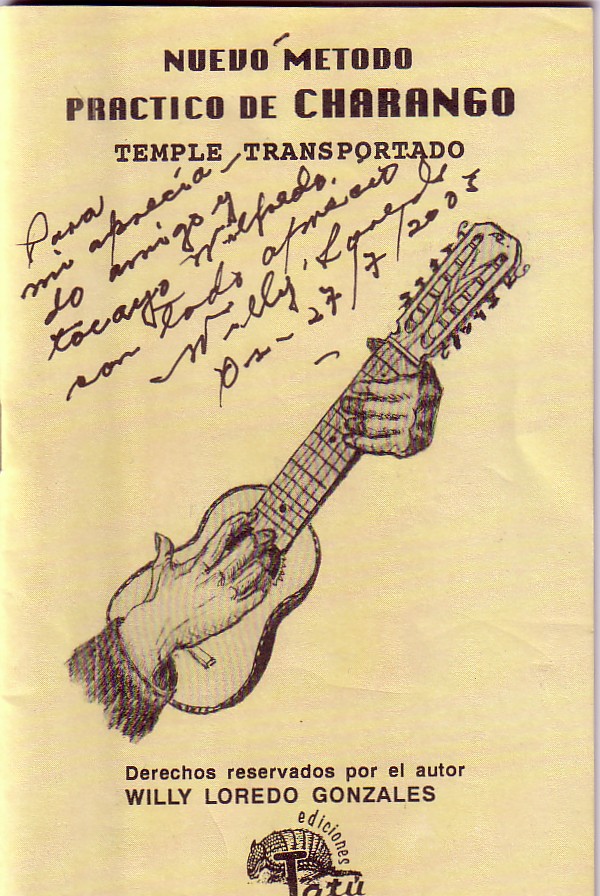 NUEVO METODO
PRACTICO DE CHARANGO
TEMPLE TRANSPORTADO
Para
mi aprecia-
do amigo y
tocayo Wilfredo.
con todo aprecio
Willy Loredo
27/7/2003
Derechos reservados por el autor
WILLY LOREDO GONZALES
ediciones
Tatú